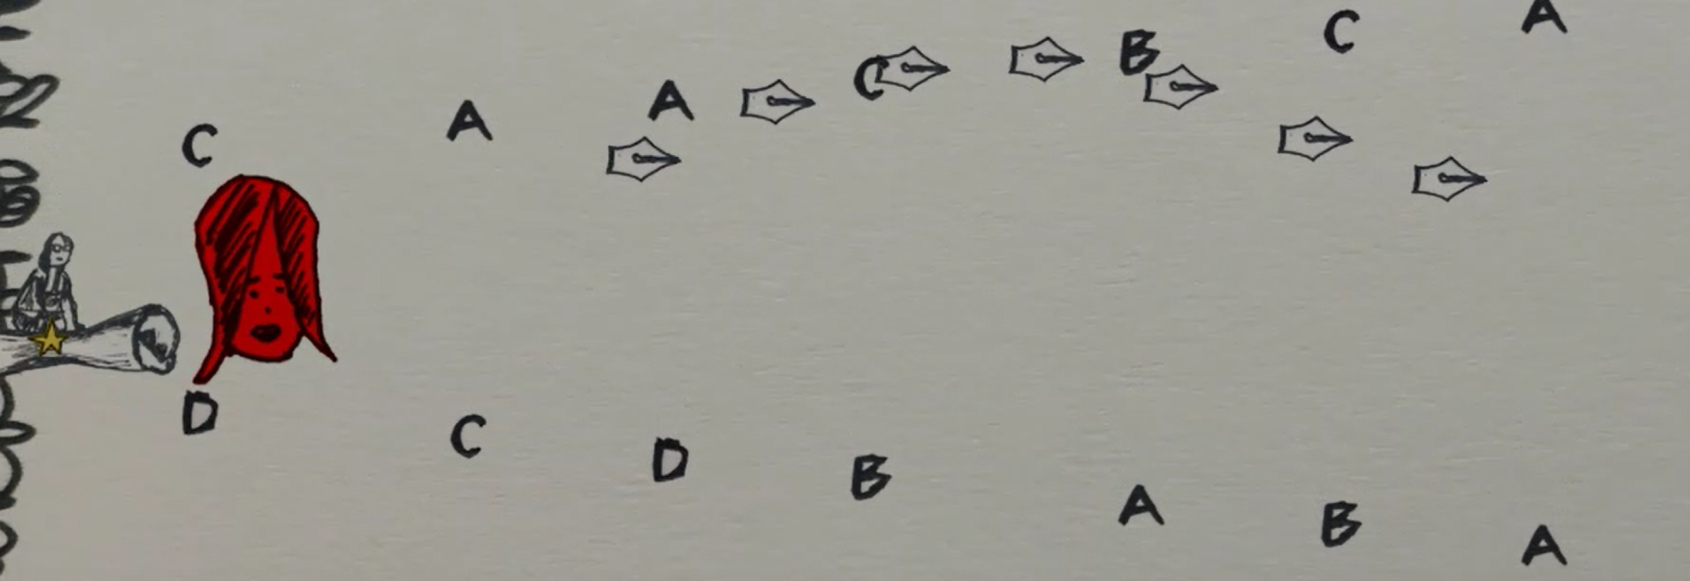 C A A C B C A
D C D B A B A